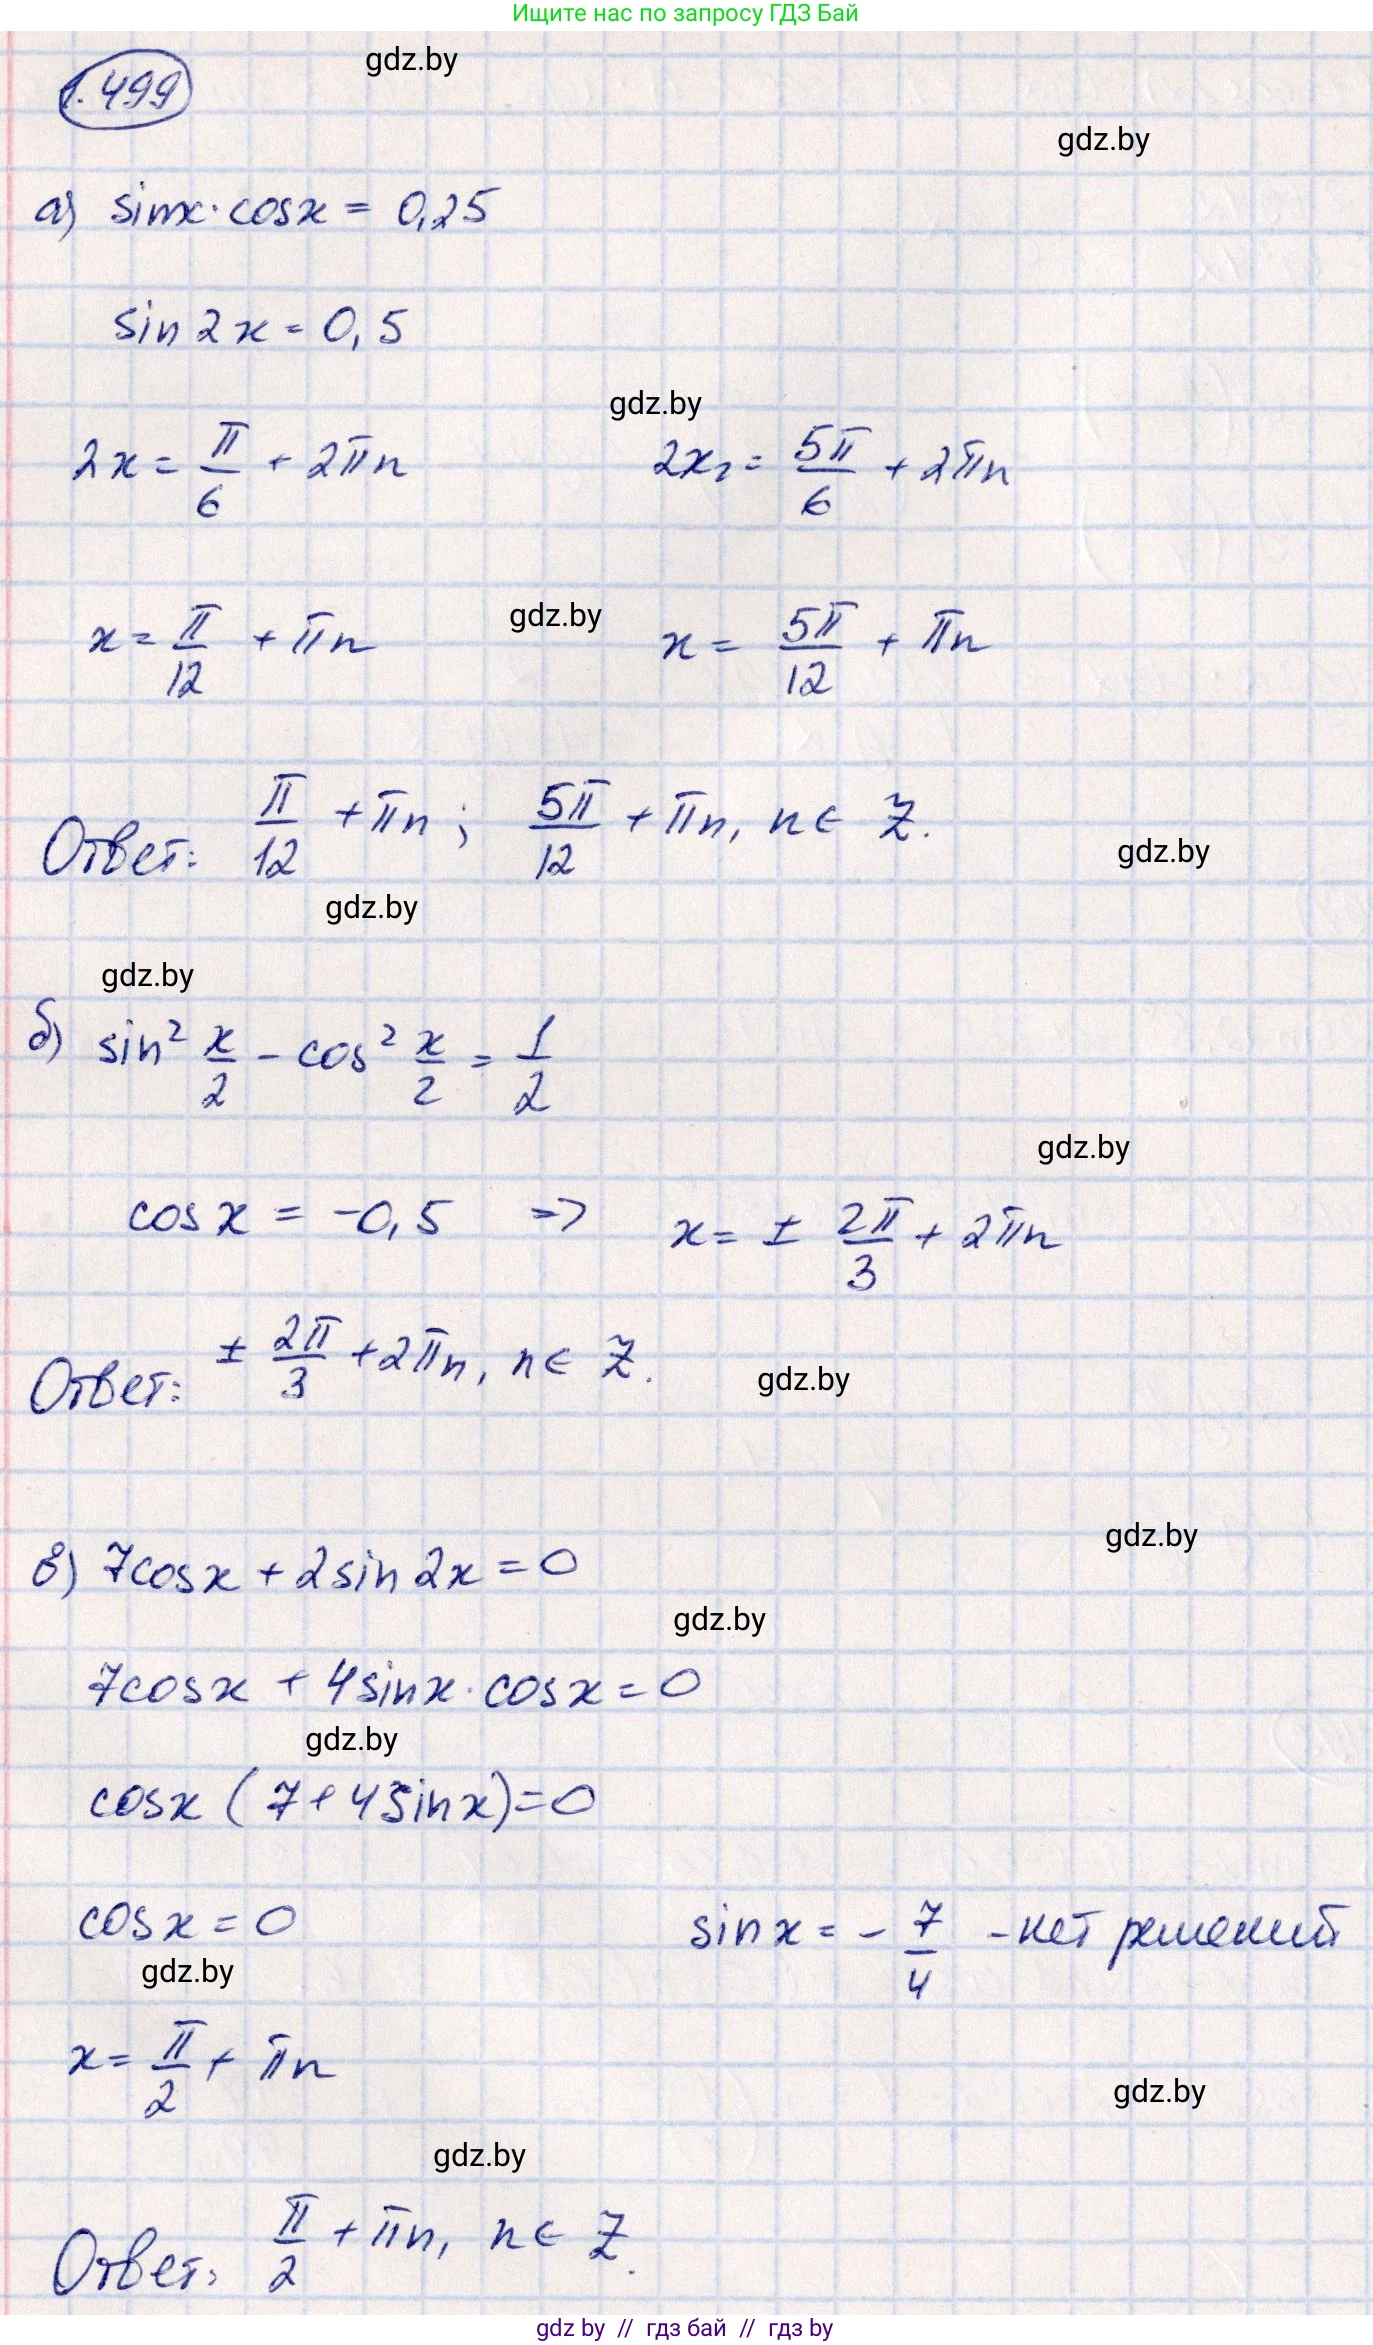 Ищите нас по запросу ГДЗ Бай
1.499
gdz.by
gdz.by
а) sinx·cosx = 0,25
sin 2x = 0,5
gdz.by
2x = π/6 + 2πn     2x₂ = 5π/6 + 2πn
gdz.by
x = π/12 + πn     x = 5π/12 + πn
Ответ: π/12 + πn ; 5π/12 + πn, n ∈ Z.
gdz.by
gdz.by
gdz.by
б) sin² x/2 - cos² x/2 = 1/2
gdz.by
cosx = -0,5 => x = ± 2π/3 + 2πn
Ответ: ± 2π/3 + 2πn, n ∈ Z.
gdz.by
gdz.by
в) 7cosx + 2sin2x = 0
gdz.by
7cosx + 4sinx·cosx = 0
gdz.by
cosx (7 + 4sinx) = 0
cosx = 0     sinx = - 7/4 - нет решений
gdz.by
x = π/2 + πn
gdz.by
gdz.by
Ответ: π/2 + πn, n ∈ Z.
gdz by // гдз бай // гдз by